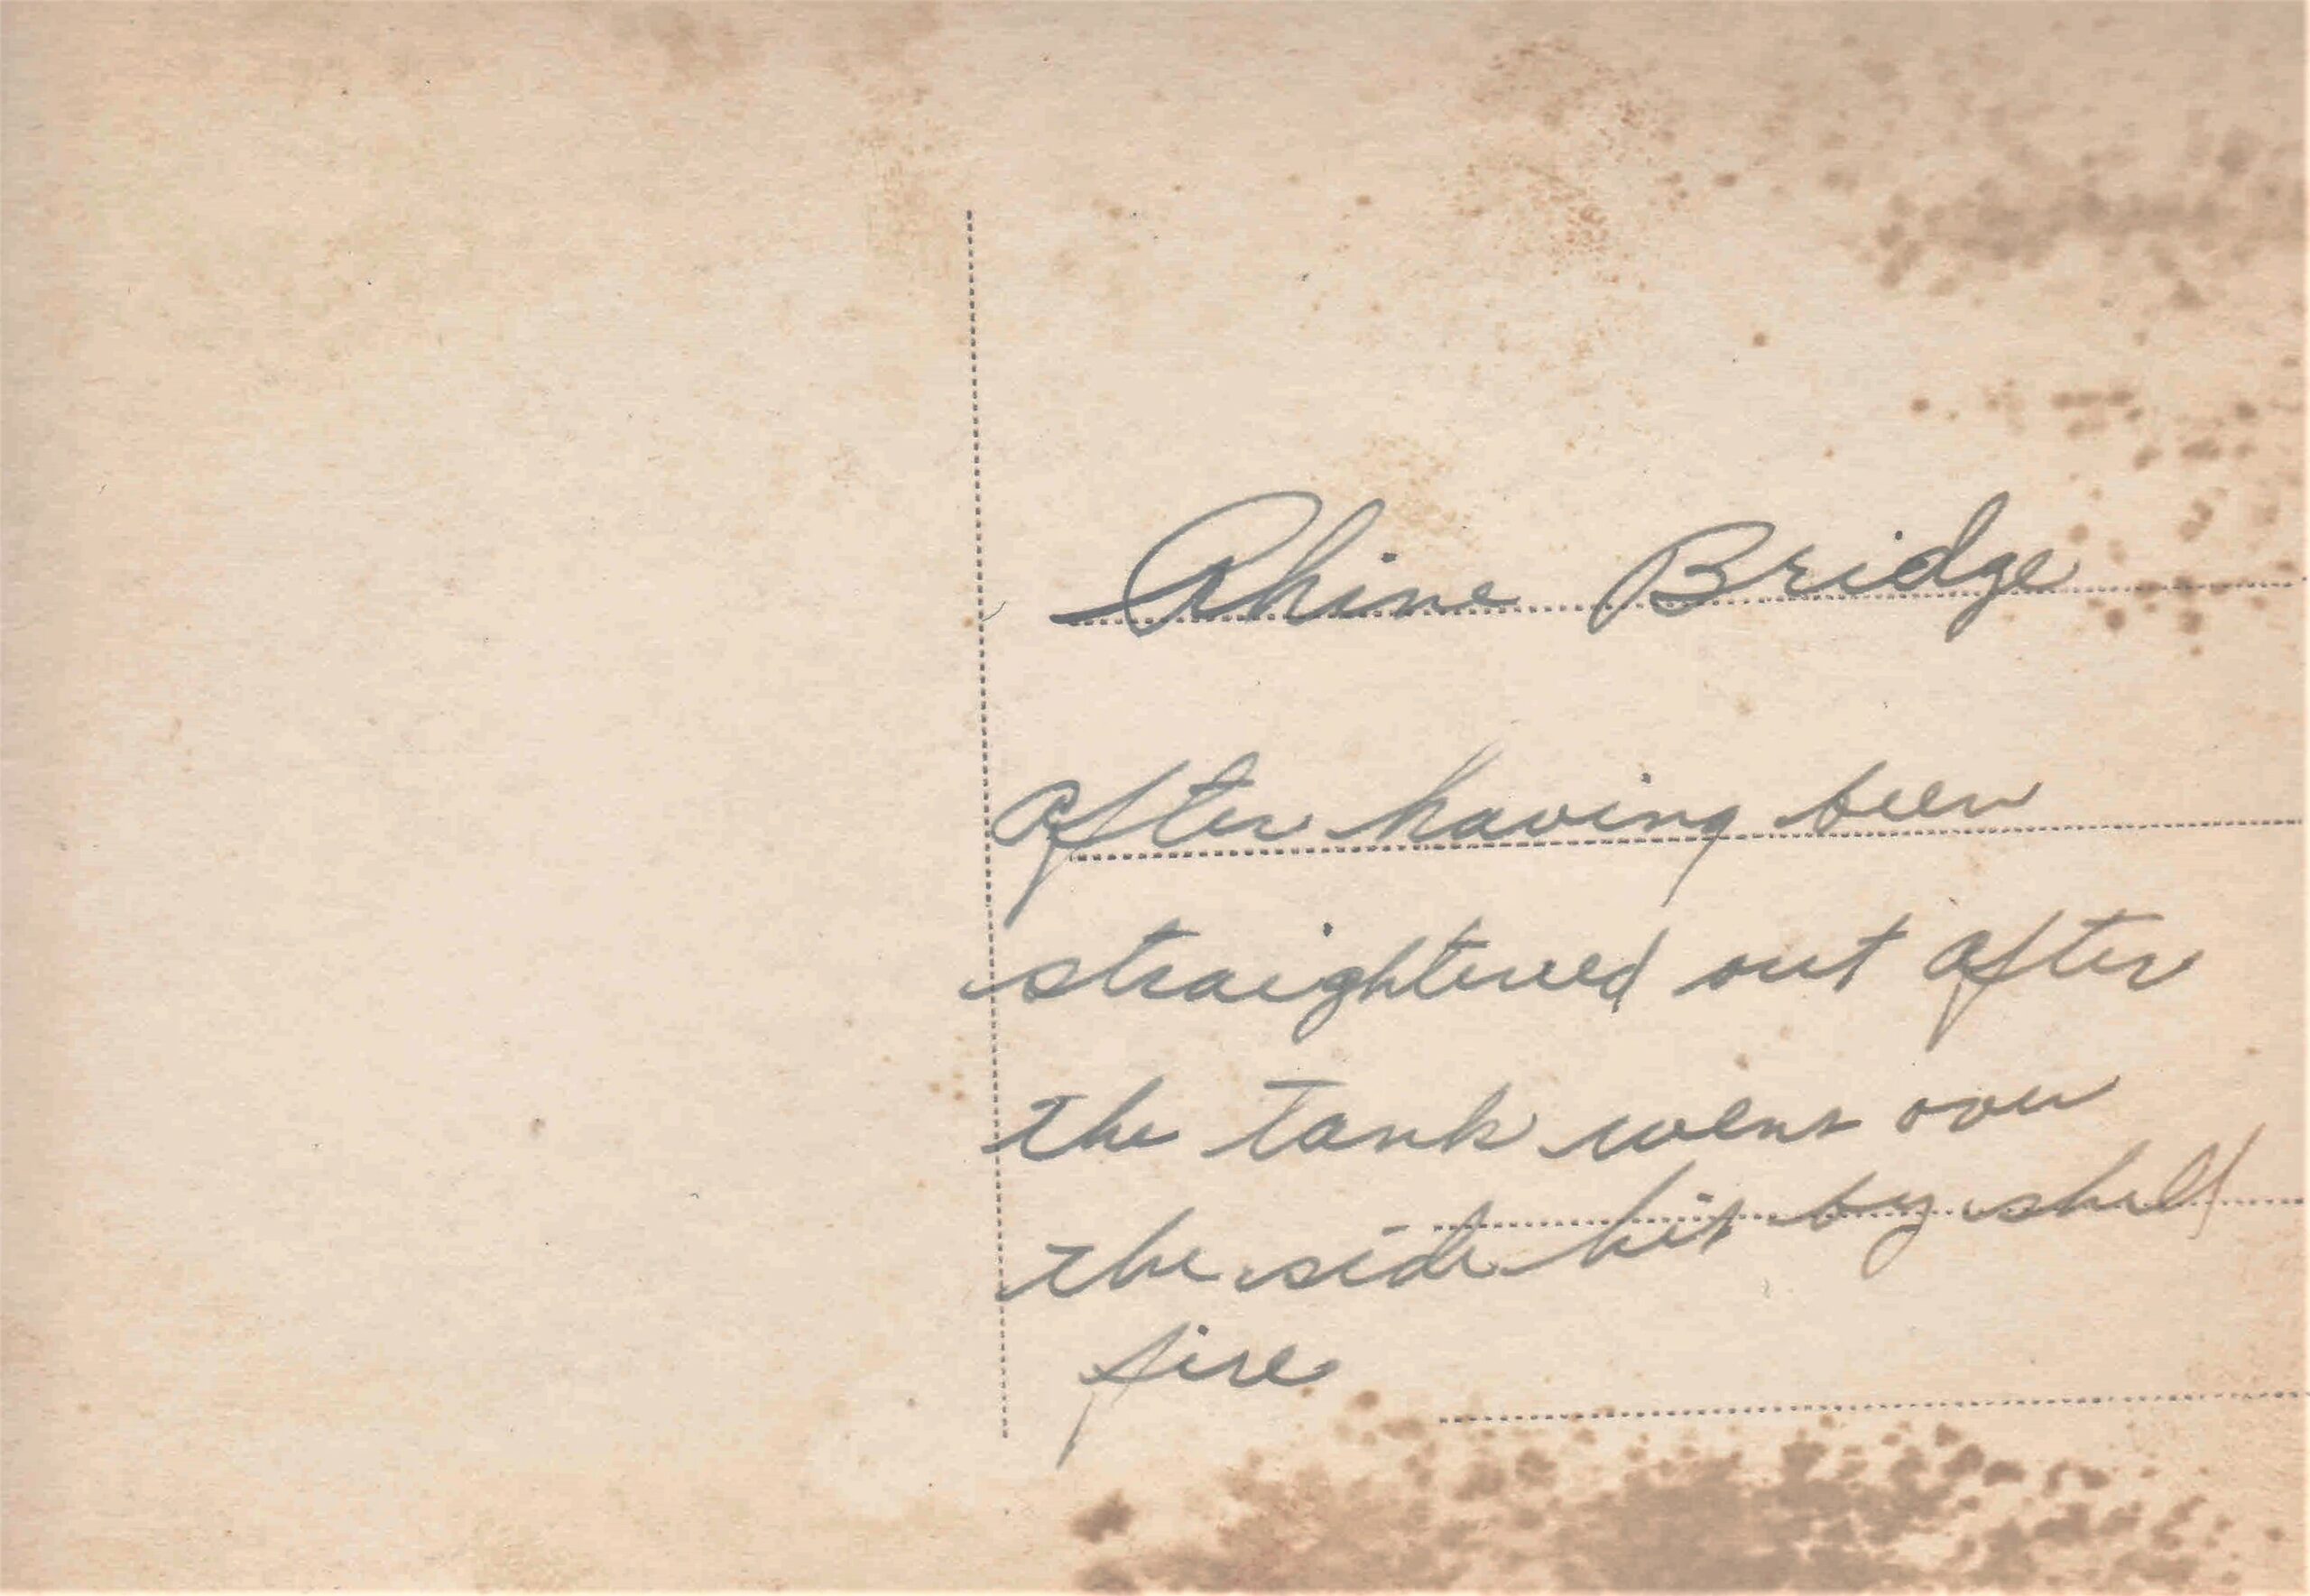 Rhine Bridge
after having been
straightened out after
the tank went over
the side hit by shell
fire